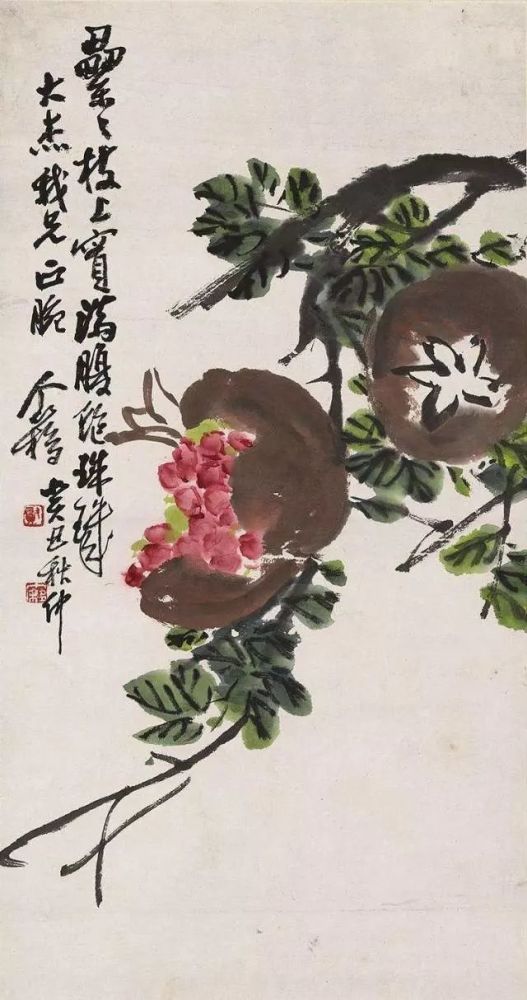 纍〻枝上實滿腹飽珠璣
大杰我兄正腕 个簃 癸丑秋仲